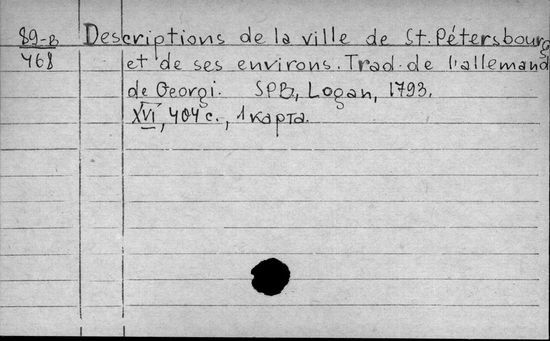 89-B Descriptions de la ville de St. Pétersbourg
468 et de ses environs. Trad. de l'allemand
de Georgi. SPB, Logan, 1793.
XVI, 404 c., 1 карта.